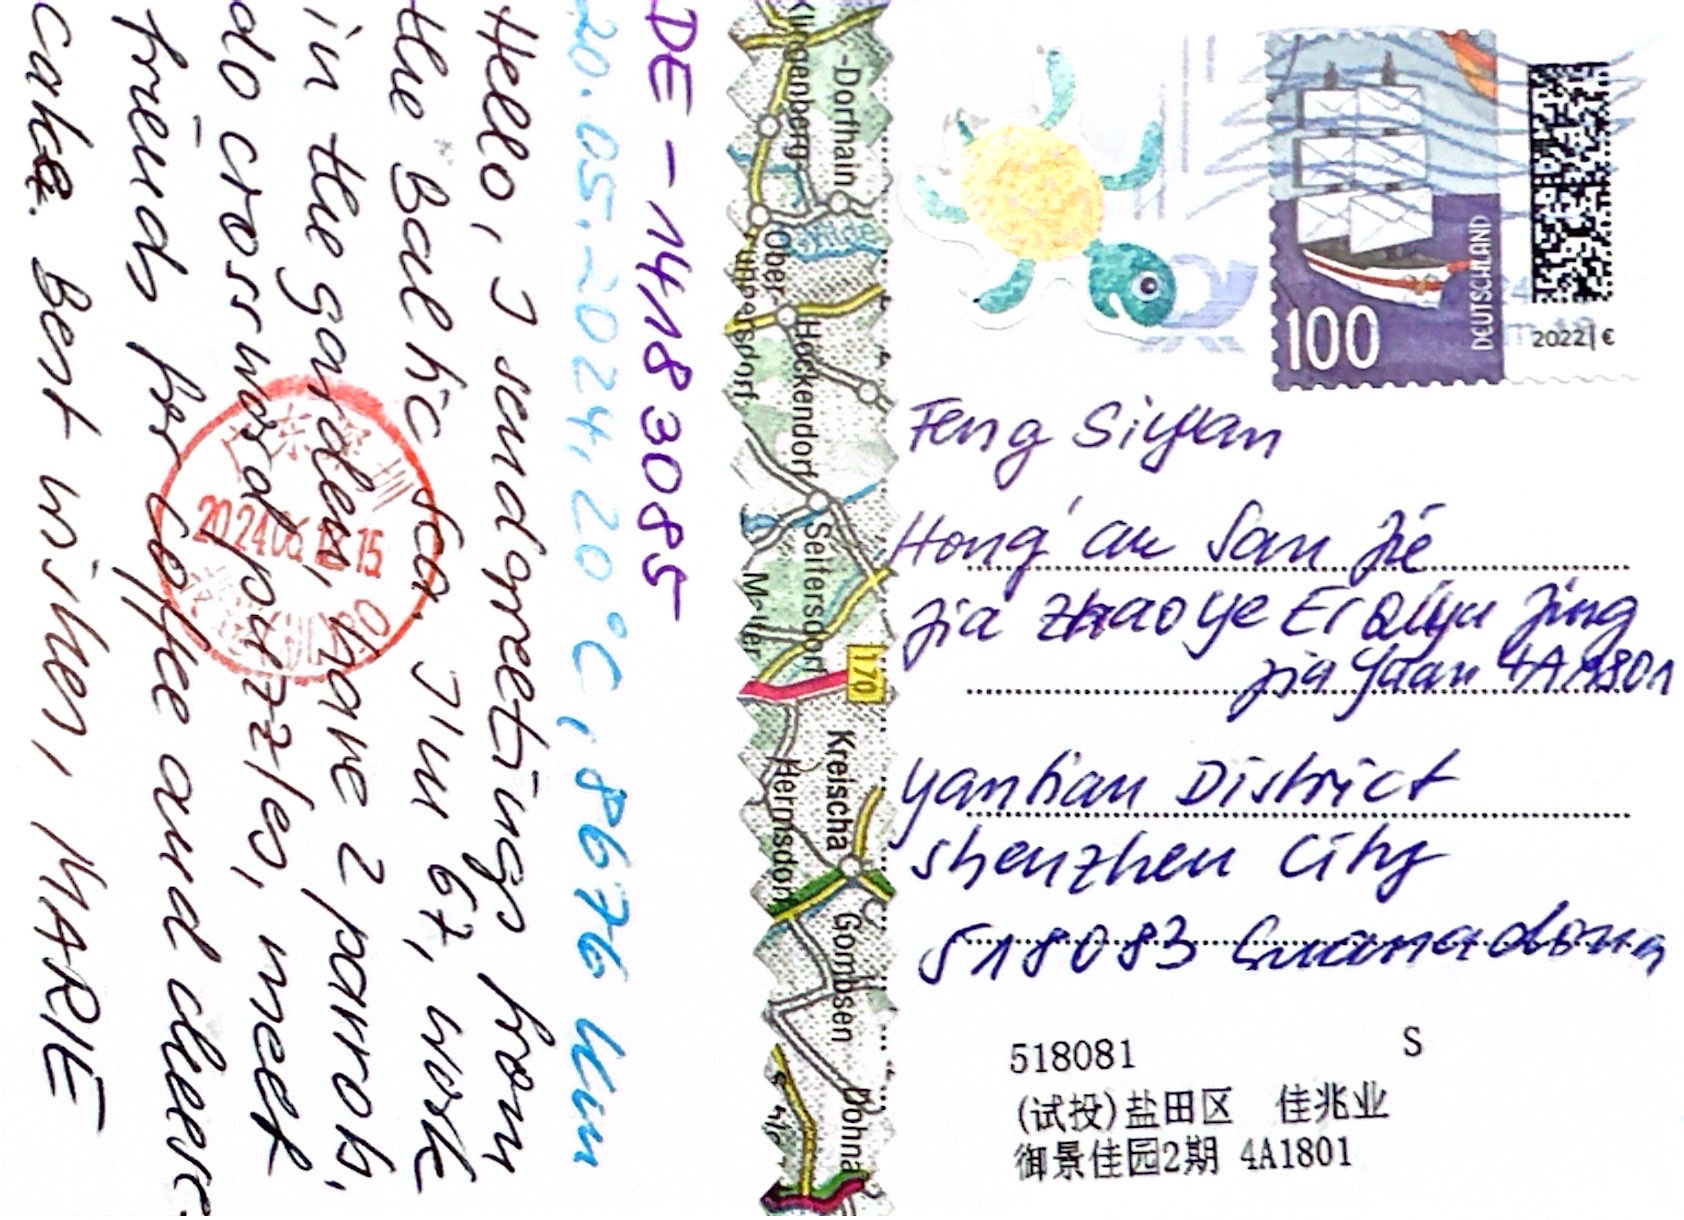 DE-14183085
20.05.2024, 20°C, 8676 km
Hello, I send greetings from
the Baltic sea. I'm 67, work
in the garden, have 2 parrots,
do crossword puzzles, meet
friends for coffee and cheese
cake. Best wishes, MARIE
2024 06 15
-Dorfhain
Klingenberg
Ober-
cunnersdorf
Höckendorf
Seifersdorf
Malter
170
Kreischa
Hermsdorf
Gombsen
Dohna
DEUTSCHLAND
100
2022 | €
Feng Siyuan
Hong'an San Jie
Jia Zhaoye Er Qi Yu Jing
Jia Yuan 4A1801
Yantian District
Shenzhen City
518083 Guangdong
518081 S
(试投)盐田区 佳兆业
御景佳园2期 4A1801